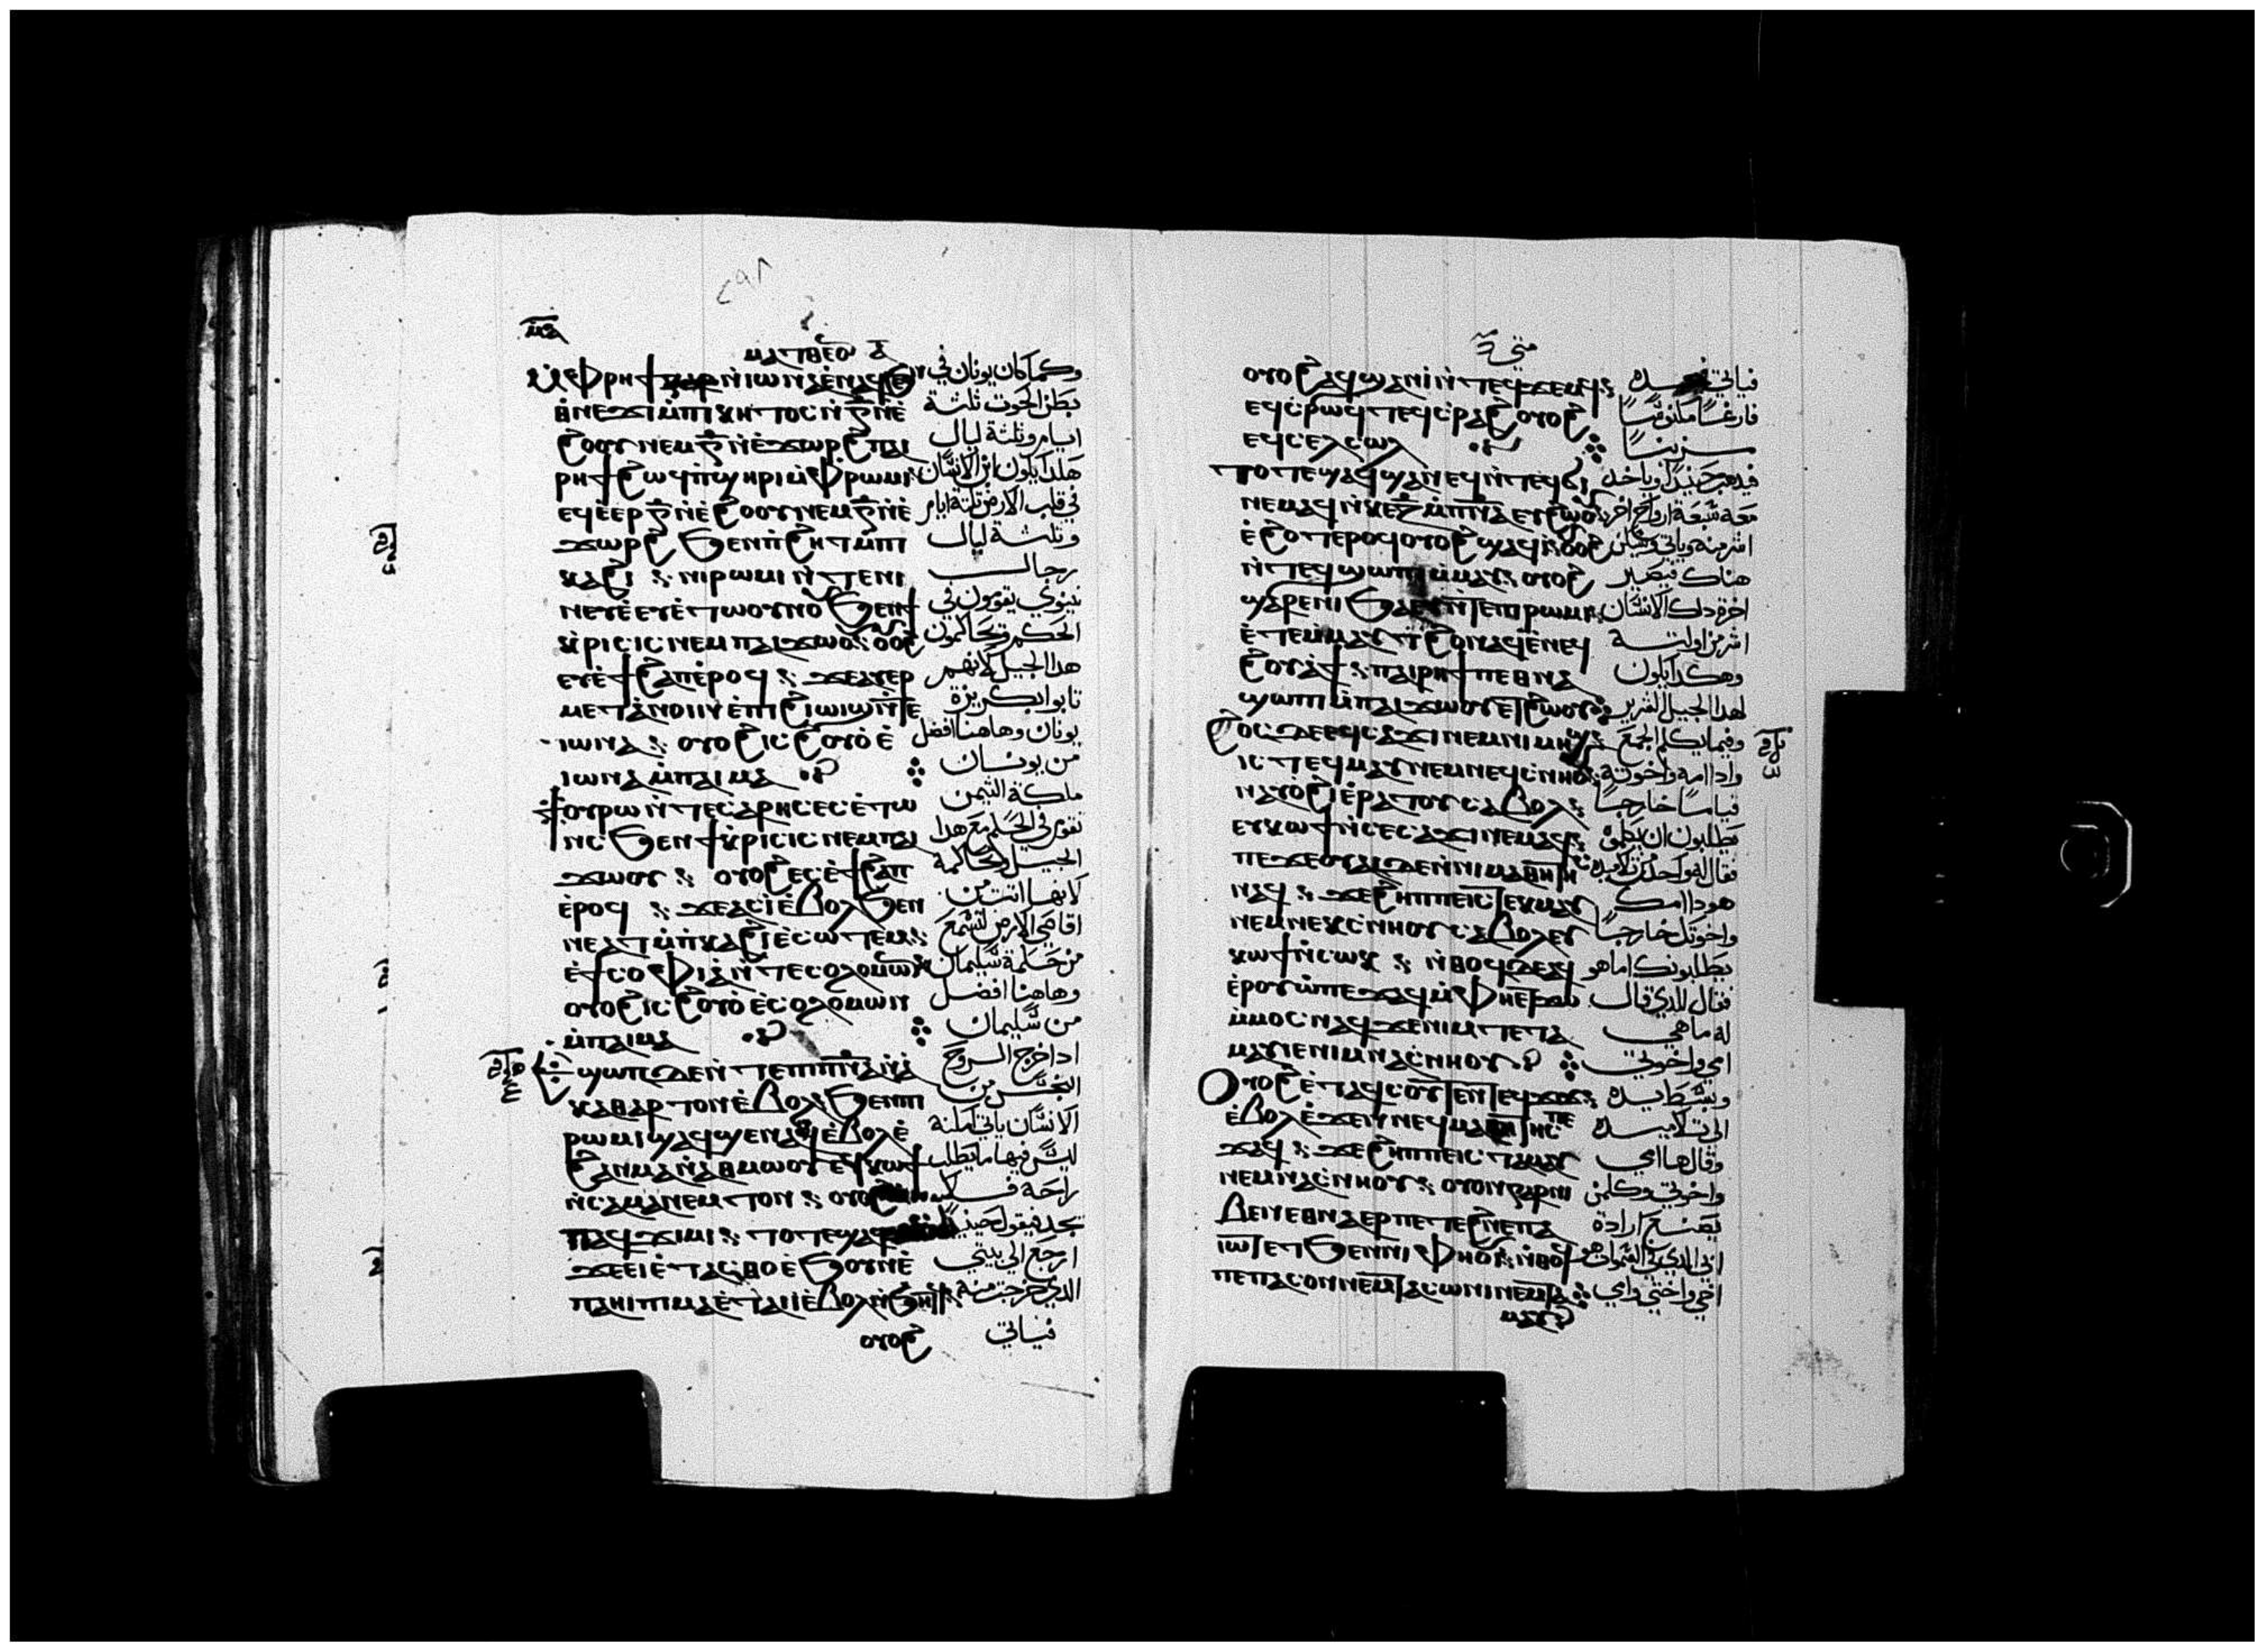 ⲙ̅ⲁ̅
ⲙⲁⲧⲑⲉⲟⲛ ⲁ̅
ⲙ̀ⲫⲣⲏϯ ⲛ̀ⲓⲱⲛⲁ ⲉ̀ⲛⲁϥϧⲉⲛ
ⲑⲛⲉϫⲓ ⲙ̀ⲡⲓⲕⲏⲧⲟⲥ ⲛ̀ⲅ̅ ⲛ̀ⲉ̀
ϩⲟⲟⲩ ⲛⲉⲙ ⲅ̅ ⲛ̀ⲉ̀ϫⲱⲣϩ ⲡⲁⲓ
ⲣⲏϯ ϩⲱϥ ⲡ̀ϣⲏⲣⲓ ⲙ̀ⲫⲣⲱⲙⲓ
ⲉϥⲉ̀ⲉⲣ ⲅ̅ ⲛ̀ⲉ̀ϩⲟⲟⲩ ⲛⲉⲙ ⲅ̅ ⲛ̀ⲉ̀
ϫⲱⲣϩ ϧⲉⲛ ⲡ̀ϩⲏⲧ ⲙ̀ⲡ
ⲕⲁϩⲓ ⲛⲓⲣⲱⲙⲓ ⲛ̀ⲧⲉ ⲛⲓ
ⲛⲉⲩⲉ̀ ⲉⲩⲉ̀ⲧⲱⲟⲩⲛⲟⲩ ϧⲉⲛ ϯ
ⲕⲣⲓⲥⲓⲥ ⲛⲉⲙ ⲡⲁⲓϫⲱⲟⲩ ⲟⲩⲟϩ
ⲉⲩⲉ̀ϯϩⲁⲡ ⲉ̀ⲣⲟϥ ϫⲉ ⲁⲩⲉⲣ
ⲙⲉⲧⲁⲛⲟⲓⲛ ⲉ̀ⲡϩⲓⲱⲓϣ ⲛ̀ⲧⲉ
ⲓⲱⲛⲁ ⲟⲩⲟϩ ⲓⲥ ϩⲟⲩⲟ̀ ⲉ̀
ⲓⲱⲛⲁ ⲙ̀ⲡⲁⲓⲙⲁ
ϯⲟⲩⲣⲱ ⲛ̀ⲧⲉ ⲥⲁⲣⲏⲥ ⲉⲥⲉ̀ⲧⲱ
ⲛⲥ ϧⲉⲛ ϯⲕⲣⲓⲥⲓⲥ ⲛⲉⲙ ⲡⲁⲓ
ϫⲱⲟⲩ ⲟⲩⲟϩ ⲉⲥⲉ̀ϯϩⲁⲡ
ⲉ̀ⲣⲟϥ ϫⲉ ⲁⲥⲓ̀ ⲉ̀ⲃⲟⲗϧⲉⲛ
ⲛⲉⲁⲧ ⲙ̀ⲡ̀ⲕⲁϩⲓ ⲉ̀ⲥⲱⲧⲉⲙ
ⲉ̀ϯⲥⲟⲫⲓⲁ ⲛ̀ⲧⲉ ⲥⲟⲗⲟⲙⲱⲛ
ⲟⲩⲟϩ ⲓⲥ ϩⲟⲩⲟ̀ ⲉ̀ⲥⲟⲗⲟⲙⲱⲛ
ⲙ̀ⲡⲁⲓⲙⲁ
ϣⲱⲡ ⲇⲉ ⲛ̀ⲧⲉ ⲡⲓⲡ̅ⲛ̅ⲁ̅ ⲛ̀ⲁ̀
ⲕⲁⲑⲁⲣⲧⲟⲛ ⲉ̀ⲃⲟⲗϧⲉⲛ ⲡⲓ
ⲣⲱⲙⲓ ϣⲁϥϣⲉⲛⲁϥ ⲉ̀ⲃⲟⲗ ⲉ̀
ϩⲁⲛⲙⲁ ⲛ̀ⲁⲑⲙⲱⲟⲩ ⲉϥⲕⲱϯ
ⲛ̀ⲥⲁ ⲙⲁⲛⲉⲙⲧⲟⲛ ⲟⲩⲟϩ
ⲡⲁϥϫⲓⲙⲓ ⲧⲟⲧⲉ ϣⲁϥ
ϫⲉ ⲉⲓⲉ̀ⲧⲁⲥⲑⲟ ⲉ̀ϧⲟⲩⲛ ⲉ̀
ⲡⲁⲏⲓ ⲡⲓⲙⲁ ⲉ̀ⲧⲁⲓⲓ̀ ⲉ̀ⲃⲟⲗ ⲛ̀ϧⲏⲧϥ
ⲟⲩⲟϩ
وكما كان يونان في
بطن الحوت ثلثة
ايام وثلثة ليال
هكذا يكون ابن الانسان
في قلب الارض ثلثة ايام
وثلثة ليال
رجال
نينوي يقومون في
الحكم ويحاكمون
هذا الجيل لانهم
تابوا بكريزة
يونان وهاهنا افضل
من يونان
ملكة التيمن
تقوم في الحكم مع هذا
الجيل وتحاكمه
لانها اتت من
اقاصي الارض لتسمع
من حكمة سليمان
وهاهنا افضل
من سليمان
اذا خرج الروح
النجس من
الانسان ياتي امكنة
ليس فيها ما يطلب
راحة فلا
يجد فيقول حينيذ
ارجع الي بيتي
الذي خرجت منه
فياتي
متي
ⲟⲩⲟϩ ⲁϥϣⲁⲛⲓ̀ ⲛ̀ⲧⲉϥϫⲉⲙϥ
ⲉϥⲥ̀ⲣⲱϥⲧ ⲉϥⲥ̀ⲣⲁϩ ⲟⲩⲟϩ
ⲉϥⲥⲉⲗⲥⲱⲗ
ⲧⲟⲧⲉ ϣⲁϥϣⲉⲛⲁϥ ⲛ̀ⲧⲉϥϭⲓ
ⲛⲉⲙⲁϥ ⲛ̀ⲕⲉ ⲍ̅ ⲙ̀ⲡ̅ⲛ̅ⲁ̅ ⲉⲩϩⲱⲟⲩ
ⲉ̀ϩⲟⲧⲉⲣⲟϥ ⲟⲩⲟϩ ϣⲁϥ
ⲛ̀ⲧⲉϥϣⲱⲡⲓ ⲙ̀ⲙⲁⲩ ⲟⲩⲟϩ
ϣⲁⲣⲉ ⲛⲓϧⲁⲉⲩ ⲛ̀ⲧⲉ ⲡⲓⲣⲱⲙⲓ
ⲉ̀ⲧⲉⲙ̀ⲙⲁⲩ ϩⲟⲓⲛⲁϥ ⲉ̀ⲛⲉϥ
ϩⲟⲩⲁϯ ⲡⲁⲓⲣⲏϯ ⲡⲉⲑⲛⲁ
ϣⲱⲡⲓ ⲙ̀ⲡⲁⲓϫⲱⲟⲩ ⲉⲧϩⲱⲟⲩ
ϩⲟⲥ ⲇⲉ ⲉϥⲥⲁϫⲓ ⲛⲉⲙ ⲛⲓⲙⲏϣ
ⲓⲥ ⲧⲉϥⲙⲁⲩ ⲛⲉⲙ ⲛⲉϥⲥ̀ⲛⲏⲟⲩ
ⲛⲁⲩⲟ̀ϩⲓ ⲉ̀ⲣⲁⲧⲟⲩ ⲥⲁⲃⲟⲗ
ⲉⲩⲕⲱϯ ⲛ̀ⲥⲉⲥⲁϫⲓ ⲛⲉⲙⲁϥ
ⲡⲉϫⲉ ⲟⲩⲁⲓ ⲇⲉ ⲛ̀ⲛⲓⲙⲁⲑⲏⲧⲏⲥ
ⲛⲁϥ ϫⲉ ϩⲏⲡⲡⲉ ⲓⲥ ⲧⲉⲕⲙⲁⲩ
ⲛⲉⲙ ⲛⲉⲕⲥ̀ⲛⲏⲟⲩ ⲥⲁⲃⲟⲗ ⲉⲩ
ⲕⲱϯ ⲛ̀ⲥⲱⲕ ⲛ̀ⲑⲟϥ ⲇⲉ ⲁϥ
ⲉ̀ⲣⲟⲩⲱ̀ ⲡⲉϫⲁϥ ⲙ̀ⲫⲏⲉⲧϫⲱ
ⲙ̀ⲙⲟⲥ ⲛⲁϥ ϫⲉ ⲛⲓⲙ ⲧⲉ ⲧⲁ
ⲙⲁⲩ ⲓⲉ ⲛⲓⲙ ⲛⲁⲥ̀ⲛⲏⲟⲩ
ⲟⲩⲟϩ ⲉ̀ⲧⲁϥⲥⲟⲩⲧⲉⲛ ⲧⲉϥϫⲓϫ
ⲉ̀ⲃⲟⲗ ⲉ̀ϫⲉⲛ ⲛⲉϥⲙⲁⲑⲏⲧⲏⲥ ⲡⲉ
ϫⲁϥ ϫⲉ ϩⲏⲡⲡⲉ ⲓⲥ ⲧⲁⲙⲁⲩ
ⲛⲉⲙ ⲛⲁⲥ̀ⲛⲏⲟⲩ ⲟⲩⲟⲛ ⲅⲁⲣ ⲛⲓ
ⲃⲉⲛ ⲉⲑⲛⲁⲉⲣ ⲡⲉⲧⲉϩⲛⲉ ⲡⲁ
ⲓⲱⲧ ⲉⲧϧⲉⲛ ⲛⲓⲫⲏⲟⲩⲓ ⲛ̀ⲑⲟϥ
ⲡⲉ ⲡⲁⲥⲟⲛ ⲛⲉⲙ ⲧⲁⲥⲱⲛⲓ ⲛⲉⲙ ⲧⲁ
ⲙⲁⲩ
فياتي فيجده
فارغا مكنوسا
مزينا
فيذهب حينيذ وياخذ
معه سبعة ارواح اخر
اشر منه وياتي ويسكن
هناك فيصير
اخرة ذلك الانسان
اشر من اولته
وهكذا يكون
لهذا الجيل الشرير
وفيما يكلم الجمع
واذا امه واخوته
قياما خارجا
يطلبون ان يكلموه
فقال له واحد من تلاميذه
هوذا امك
واخوتك خارجا
يطلبونك اما هو
فقال للذي قال
له ما هي
امي واخوتي
وبسط يده
الي تلاميذه
وقال ها امي
واخوتي وكلمن
يصنع ارادة
ابي الذي في السموات هو
اخي واختي وامي